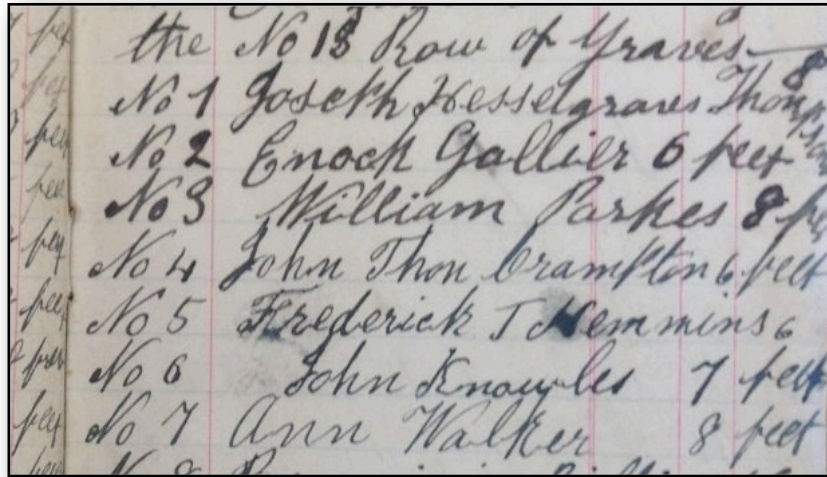 the No 13 Row of Graves
No 1 Joseth Hesselgraves Thompson 8
No 2 Enock Gallier 6 feet
No 3 William Parkes 8 fe
No 4 John Thon Crampton 6 feet
No 5 Frederick T Hemmins 6
No 6 John Knowles 7 feet
No 7 Ann Walker 8 feet